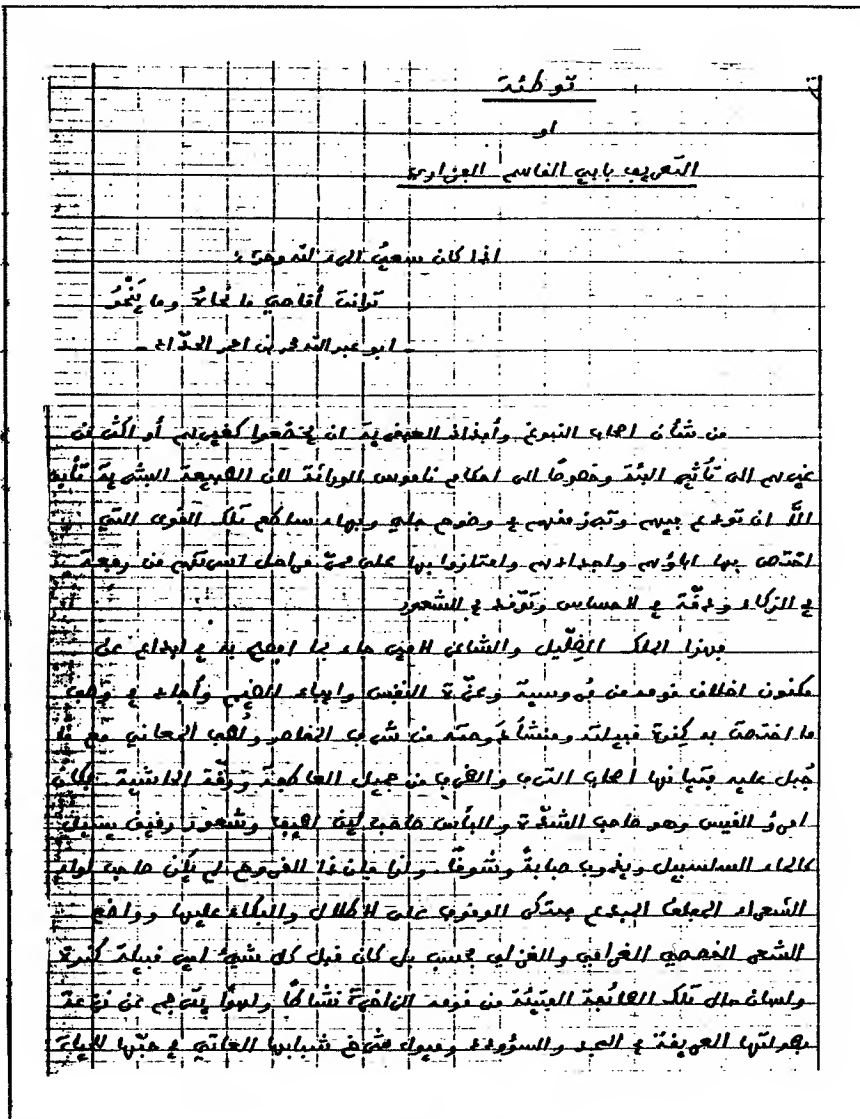 توطئة
او
التعريف بابي القاسم الفزاري
اذا كان سعيُ المرء لله وحده
تدانت أقاصي ما نحاهُ وما يَنْحُو
- ابو عبد الله محمد بن احمد الحدّاد -
من شأن اصحاب النبوغ وأفذاذ العبقرية ان يخضعوا كغيرهم أو اكثر من
غيرهم الى تأثير البئة وخصوصًا الى احكام ناموس الوراثة لان الطبيعة البشرية تأبى
الاّ ان تودع فيهم وتبرز منهم في وضوح جلي وبهاء ساطع تلك القوى التي
اختص بها اباؤهم واجدادهم وامتازوا بها على مرّ مراحل اسرتهم من
في الذكاء ودقّة في الاحساس وتوقّد في الشعور
فهذا الملك الضِلّيل والشاعر الامير جاء بما اوضح به في ابداع عن
مكنون اخلاق قومه من فروسية وعزّة النفس واباء الضيم وأجاد في وصف
ما اختصت به كِندة قبيلته ومنشأ دوحته من شريف الخاطر و المعاني مع ما
جُبل عليه فتيانها اصحاب الترف والظرف من جميل العاطفة ورقّة الحاشية فكان
امرؤ القيس وهو صاحب الشدّة والبأس صاحب لين اهيف وشعور رقيق يسيل
كالماء السلسبيل ويذوب صبابةً وشوقًا. ولذا فإن ذا القروح لم يكن صاحب لواء
الشعراء المفلق المبدع مبتكر الوقوف على الاطلال والبكاء عليها وواضع
الشعر القصصي الغرامي والغزلي فحسب بل كان قبل كل شيء امير قبيلة كندة
ولسان حال تلك الطائفة الفتيئة من قومه الزاخرة نشاطًا ولهوًا يترجم عن نزعة
بطولتها العريقة في المجد والسؤدد وميول شرخ شبابها العاتي في حبّها للحياة